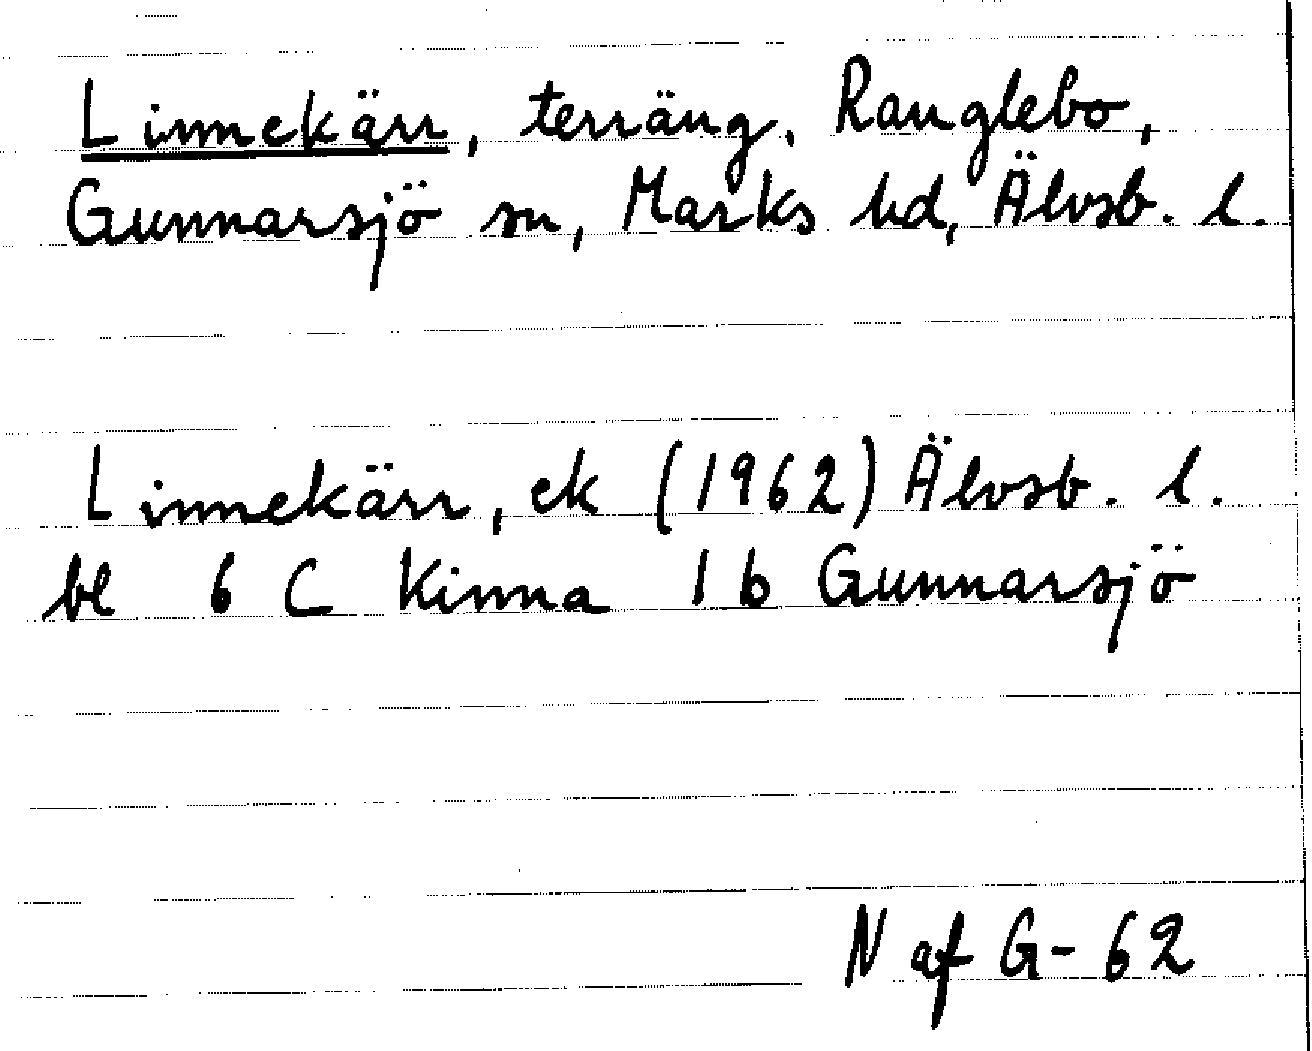 Linnekärr, terräng. Ranglebo,
Gunnarsjö sn, Marks hd, Älvsb. l.
Linnekärr, ek (1962) Älvsb. l.
bl 6 C Kinna 1 b Gunnarsjö
N af G-62